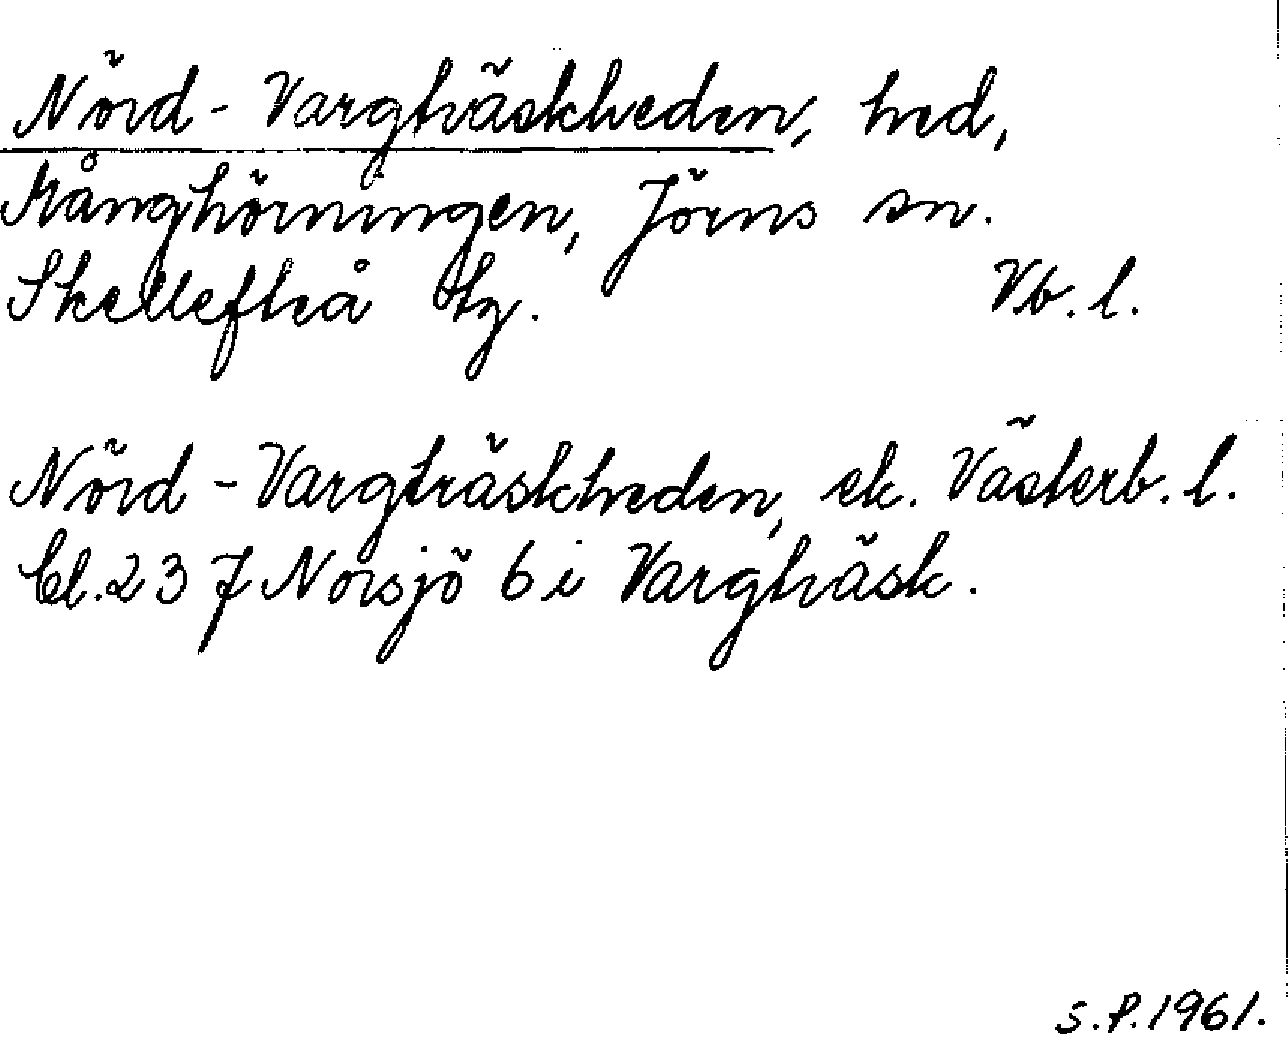 Nörd-Vargträskheden, hed,
Månghörningen, Jörns sn.
Skellefteå tg. Vb. l.
Nörd-Vargträskheden, ek. Västerb. l.
bl. 23 J Norsjö 6 i Vargträsk.
S.P. 1961.